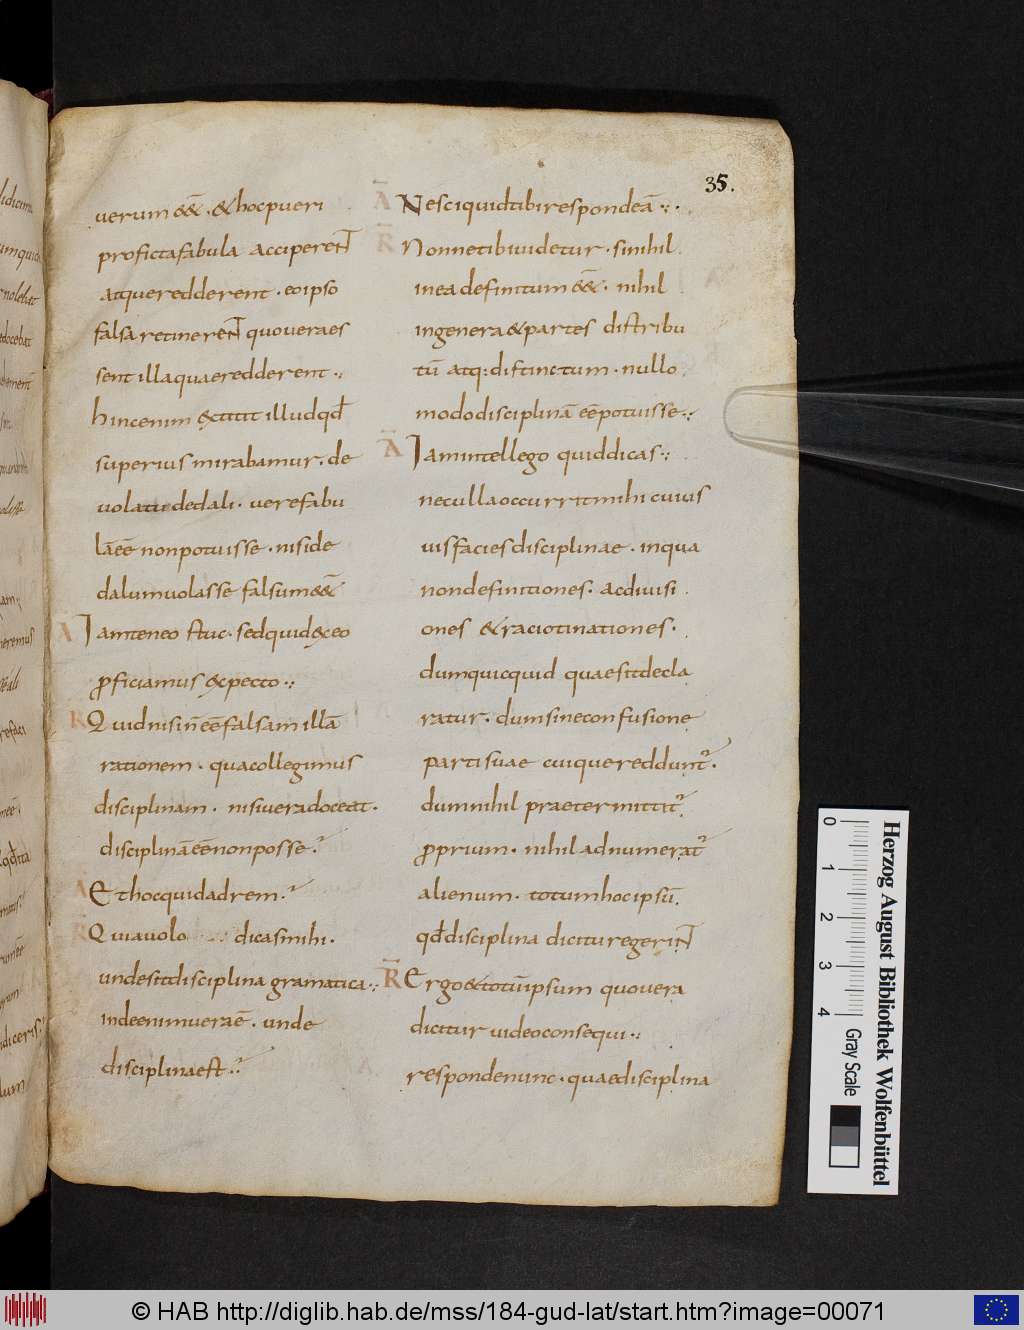 35.
uerum & & ̄ . & hocpueri
proficta fabula acciperent
atqueredderent . eoipso
falsa retinerent quoueraes
sent illaquaeredderent ·:
hincenim ęxtitit illudqđ
superius mirabamur . de
uolatu dedali . uere fabu
lā eē nonpotuisse . niside
dalumuolasse falsum & & ̄
A Iamteneo istuc . sedquidęxeo
ꝓficiamus ęxpecto ·:
R Quidnisin̄ eē falsam illā
rationem . quacollegimus
disciplinam . nisiueradoceat .
disciplinā eē nonposse .
A Ethocquidadrem .
R Quiauolo dicasmihi .
undesitdisciplina gramatica ·:
indeenimuera ē . unde
disciplinaest ·:
A Nesciquidtibirespondeā ·:
R Nonnetibiuidetur . sinihil
ineadefinitum & & ̄ . nihil
ingenera & partes distribu
tū atq: distinctum . nullo
mododisciplinā eē potuisse ·:
A Iamintellego quiddicas ·:
necullaoccurritmihi cuius
uisfaciesdisciplinae . inqua
nondefinitiones . acdiuisi
ones & raciotinationes .
dumquicquid quaesitdecla
ratur . dumsineconfusione
partisuae cuiquereddunt̄ .
dumnihil praetermittit̄
ꝓprium . nihil adnumerat̄
alienum . totumhocipsū
qđdisciplina dicituregerint
R Ergo & totūipsum quouera
dicitur uideoconsequi ·:
respondenunc . quaedisciplina
Herzog August Bibliothek Wolfenbüttel
0 1 2 3 4
Gray Scale
© HAB http://diglib.hab.de/mss/184-gud-lat/start.htm?image=00071